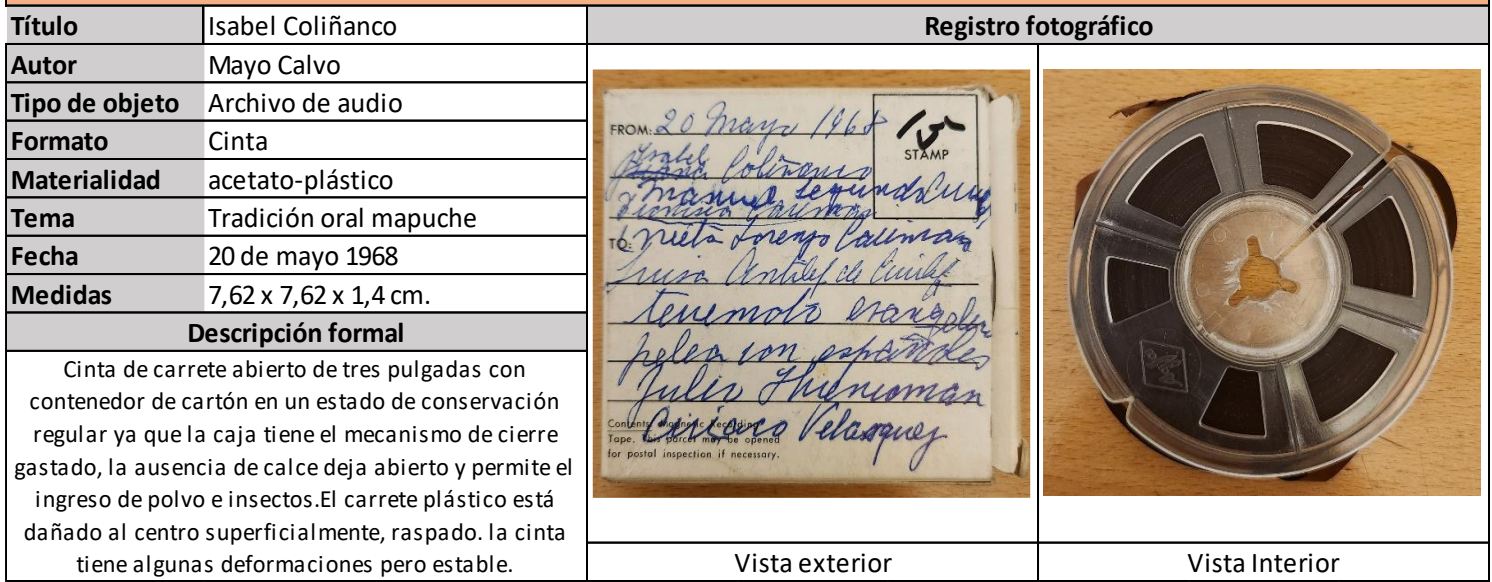 Título Isabel Coliñanco
Registro fotográfico
Autor Mayo Calvo
Tipo de objeto Archivo de audio
Formato Cinta
Materialidad acetato-plástico
Tema Tradición oral mapuche
Fecha 20 de mayo 1968
Medidas 7,62 x 7,62 x 1,4 cm.
Descripción formal
Cinta de carrete abierto de tres pulgadas con
contenedor de cartón en un estado de conservación
regular ya que la caja tiene el mecanismo de cierre
gastado, la ausencia de calce deja abierto y permite el
ingreso de polvo e insectos.El carrete plástico está
dañado al centro superficialmente, raspado. la cinta
tiene algunas deformaciones pero estable.
FROM: 20 Mayo 1968
STAMP
Isabel
Coliñanco
Manuel Segundo
TO: Nieta Lorenzo
Luisa Antilef de
pelea con españoles
Julio
Ciriaco Velasquez
Contents: Magnetic Recording
Tape. This parcel may be opened
for postal inspection if necessary.
Vista exterior
Vista Interior